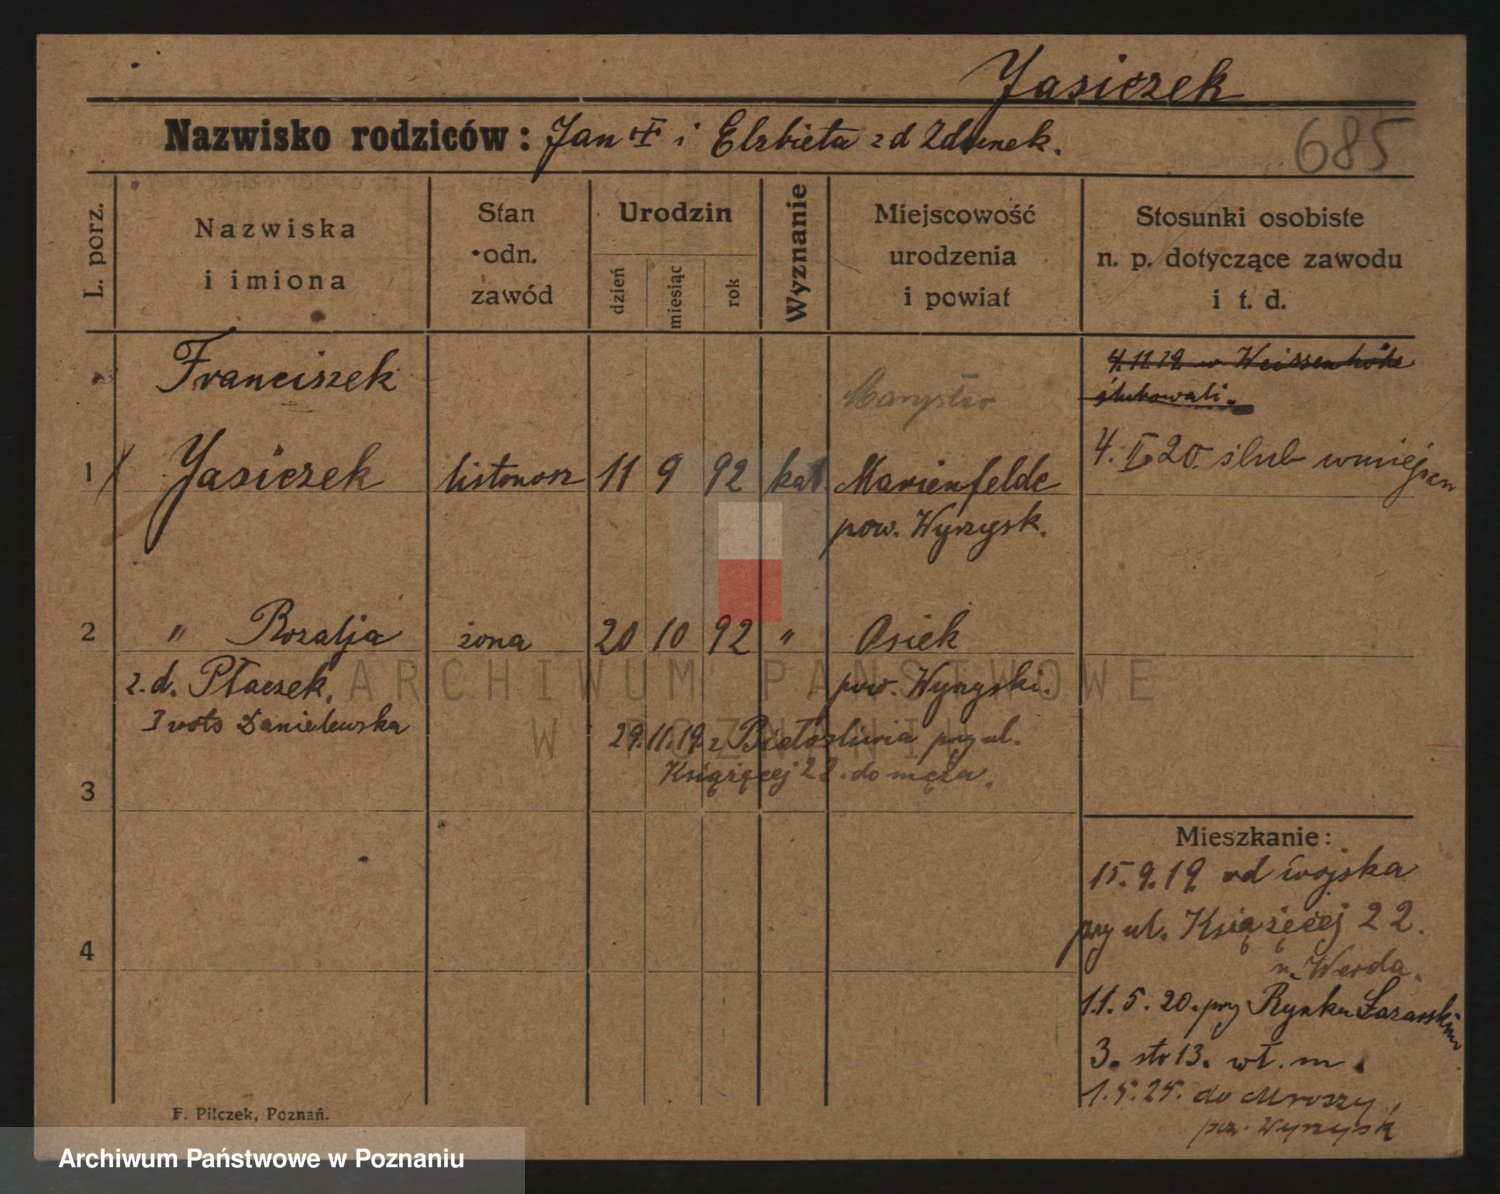 Jasiczek
Nazwisko rodziców: Jan † i Elzbieta z d Zdunek.
685
L. porz.
Nazwiska
i imiona
Stan
odn.
zawód
Urodzin
dzień
miesiąc
rok
Wyznanie
Miejscowość
urodzenia
i powiat
Stosunki osobiste
n. p. dotyczące zawodu
i t. d.
Franciszek
4.11.19. w Weissenhöhe
ślubowali.
1 Jasiczek listonosz 11 9 92 kat Marienfelde
pow. Wyrzysk.
4. II 20. ślub
2 " Rozalja żona 20 10 92 " Osiek
z. d. Płaczek, pow. Wyrzyski.
Danielewska
29.11.19. z Białosliwia przy ul.
Książęcej 22. do męża.
3
Mieszkanie:
15. 9. 19. od wojska
przy ul. Książęcej 22.
u. Werda.
4
11. 5. 20. przy Rynku Łazarskim
3. str 13. wł. m.
1. 5. 25. do Mroszy,
pow. Wyrzysk
F. Pilczek, Poznań.
ARCHIWUM PAŃSTWOWE
W POZNANIU
Archiwum Państwowe w Poznaniu